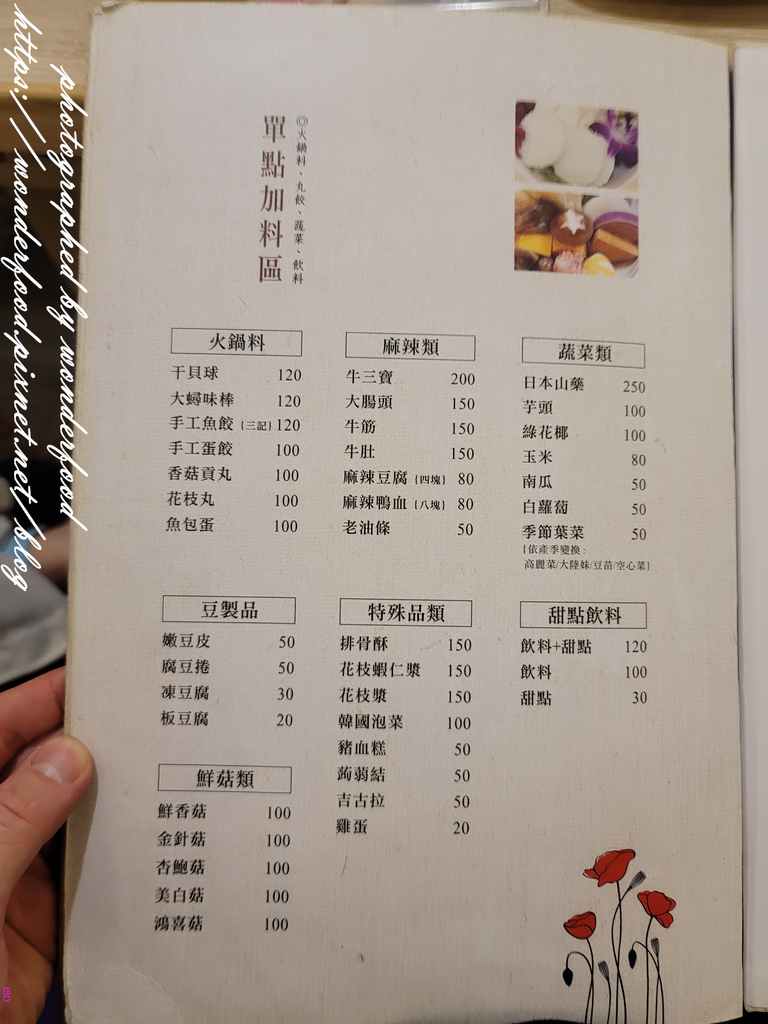 單點加料區
◎火鍋料、丸餃、蔬菜、飲料
火鍋料
干貝球 120
大蟳味棒 120
手工魚餃 {三記} 120
手工蛋餃 100
香菇貢丸 100
花枝丸 100
魚包蛋 100
麻辣類
牛三寶 200
大腸頭 150
牛筋 150
牛肚 150
麻辣豆腐 {四塊} 80
麻辣鴨血 {八塊} 80
老油條 50
蔬菜類
日本山藥 250
芋頭 100
綠花椰 100
玉米 80
南瓜 50
白蘿蔔 50
季節葉菜 50
{依產季變換:
高麗菜/大陸妹/豆苗/空心菜}
豆製品
嫩豆皮 50
腐豆捲 50
凍豆腐 30
板豆腐 20
特殊品類
排骨酥 150
花枝蝦仁漿 150
花枝漿 150
韓國泡菜 100
豬血糕 50
蒟蒻結 50
吉古拉 50
雞蛋 20
甜點飲料
飲料+甜點 120
飲料 100
甜點 30
鮮菇類
鮮香菇 100
金針菇 100
杏鮑菇 100
美白菇 100
鴻喜菇 100
photographed by wonderfood
https://wonderfood.pixnet.net/blog
ISO